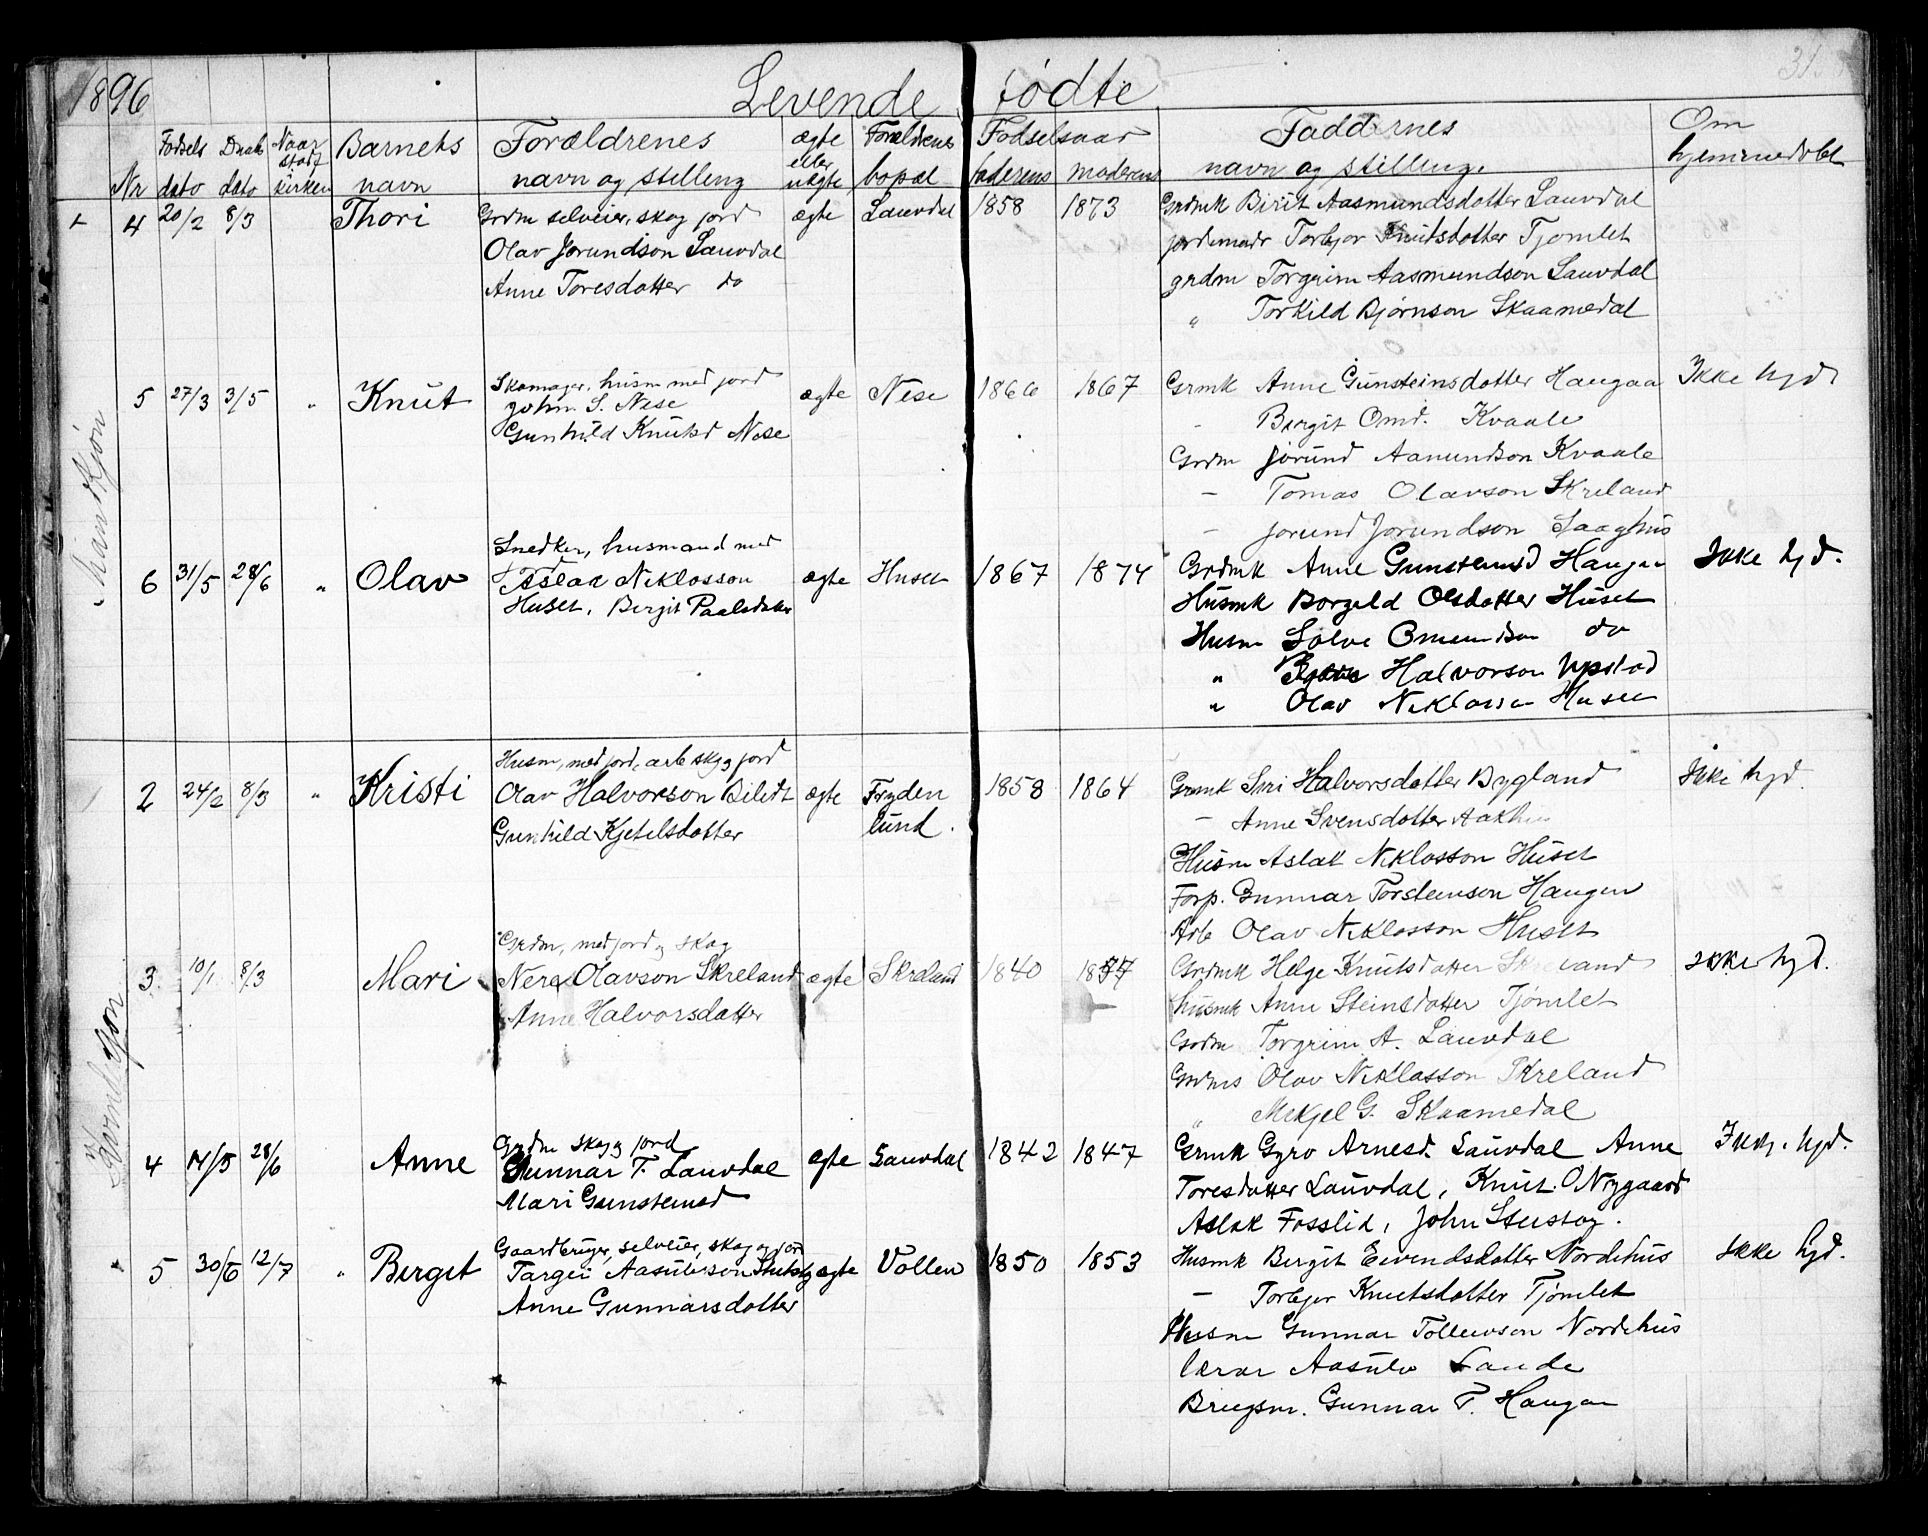 1896
Levende fødte
31.
Nr
Fødsels dato
Daabs dato
Naar stadf kirken
Barnets navn
Forældrenes navn og stilling
ægte eller uægte
Forældrenes bopæl
Fødselsaar
faderens
moderens
Faddernes navn og stilling.
Om hjemmedøbt
Mankjøn
4 20/2 8/3 Thori
Grdm selveier, skog jord
Olav Jorundson Lauvdal
Anne Toresdatter do
ægte Lauvdal 1858 1873
Grdmk Birit Aasmundsdotter Lauvdal
jordemodr Torbjor Knutsdotter Tjomlet
grdm Torgrim Aasmundson Lauvdal
" Torkild Bjørnson Skaamedal
5 27/3 3/5 " Knut
Skomager, husm med jord
John S. Nese
Gunhild Knutsd Nese
ægte Nese 1866 1867
Grmk Anne Gunsteinsdotter Haugaa
- Bergit Omd. Kvaale
Grdm Jorund Aamundson Kvaale
- Tomas Olavson Skreland
- Jorund Jorundson Laaghus
Ikke hjd
6 31/5 28/6 " Olav
Snedker, husmand med jord
Aslak Neklosson
Huset, Bergit Paalsdotter
ægte Huset 1867 1874
Grdmk Anne Gunsteinsd Haugaa
Husmk Borgeld Olsdotter Huset
Husm Solve Omundson do
" Halvorson Upstad
" Olav Neklosson Huset
Ikke hjd.
Kvindekjøn
2 24/2 8/3 " Kristi
Husm, med jord, arb skog jord
Olav Halvorson Biledt
Gunhild Kjetelsdotter
ægte Fryden
lund. 1858 1864
Grmk Siri Halvorsdotter Bygland
- Anne Svensdotter Aakhus
Husm Aslak Neklosson Huset
Forp. Gunnar Torsteinson Haugen
Arb Olav Neklosson Huset
Ikke hjd.
3 10/1 8/3 Mari
Grdm, med jord og skog
Nere Olavson Skreland
Anne Halvorsdotter
ægte Skreland 1840 1857
Grdmk Helge Knutsdotter Skreland
husmk Anne Steinsdotter Tjømlet
Grdm Torgrim A. Lauvdal
Grdms Olav Neklosson Skreland
" Mekjel G. Skaamedal
Ikke hjd.
4 14/5 28/6 Anne
Grdm skog jord
Gunnar T. Lauvdal
Mari Gunsteinsd
ægte Lauvdal 1842 1847
Grmk Gyro Arnesd. Lauvdal Anne
Toresdotter Lauvdal, Knut O Nygaard
Aslak Fosslid, John Stustog.
Ikke hjd.
5 30/6 12/7 " Berget
Gaardbruger, selveier, skog og jord
Targei Aasulvson Stustog
Anne Gunnarsdotter
ægte Vollen 1850 1853
Husmk Bergit Eivendsdotter Nordehus
- Torbjor Knutsdotter Tjømlet
Husm Gunnar Tollevson Nordehus
lærar Aasulv Lande
Brugsm. Gunnar T. Haugen
Ikke hjd.